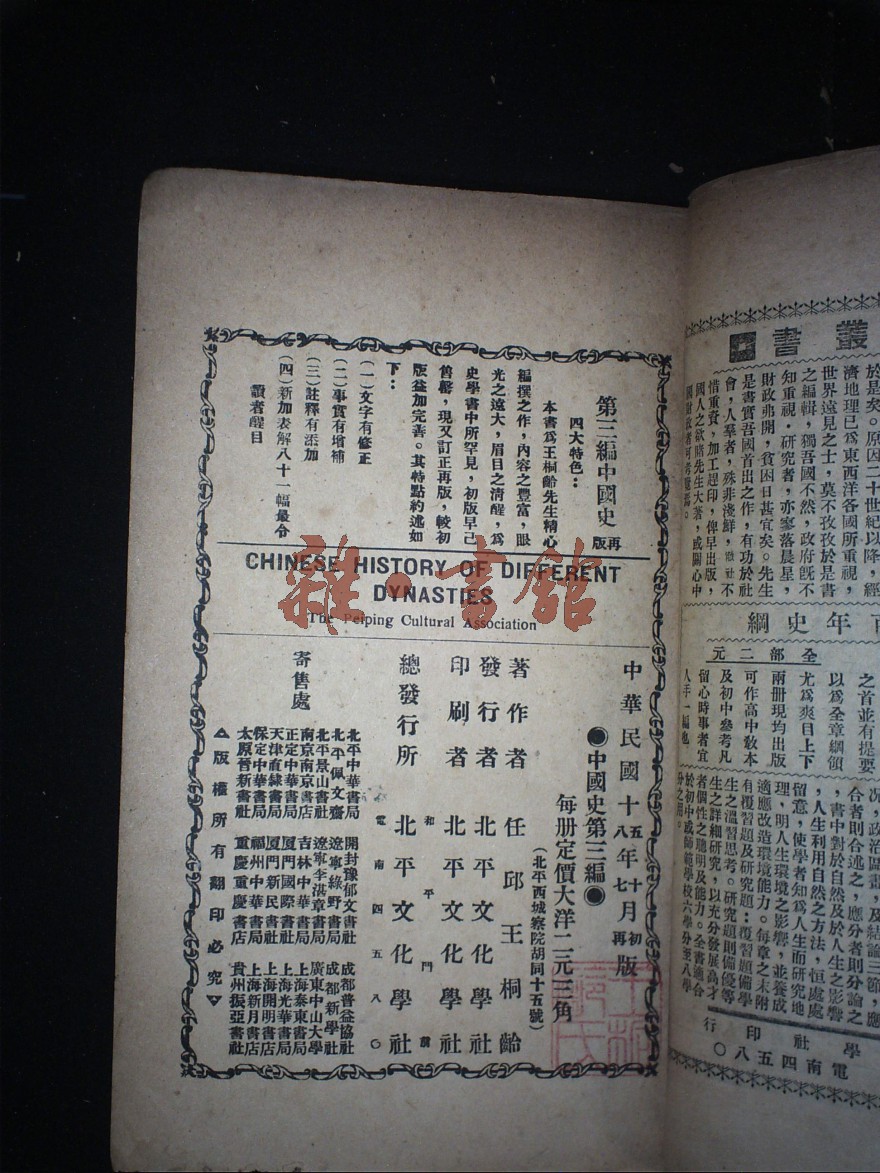 第三編中國史 再版
四大特色：
本書爲王桐齡先生精心
編撰之作，内容之豐富，眼
光之遠大，眉目之清醒，爲
史學書中所罕見，初版早已
售罄，現又訂正再版，較初
版益加完善。其特點約述如
下：
（一）文字有修正
（二）事實有增補
（三）註釋有添加
（四）新加表解八十一幅最令
讀者醒目
CHINESE HISTORY OF DIFFERENT
DYNASTIES
The Peiping Cultural Association
中華民國十五年十月初版
八七再
●中國史第三編●
每册定價大洋二元三角
（北平西城察院胡同十五號）
著作者 任邱王桐齡
發行者 北平文化學社
印刷者 北平文化學社
和平門前
總發行所 北平文化學社
電南四五八〇
寄售處
北平中華書局 開封豫郁文書社 成都普益協社
北平佩文齋 遼寧綠野書局 成都新學社
北平景山書社 遼寧李湛章書局 廣東中山大學
南京南京書店 吉林中華書局 上海泰東書局
正定中華書局 厦門國際書社 上海光華書局
天津直隸書局 厦門新民書社 上海開明書店
保定中華書局 福州中華書局 上海新月書店
太原晉新書社 重慶重慶書店 貴州振亞書社
△版權所有翻印必究▽
雜·書館
叢書
於是矣。原因二十世紀以降，經
濟地理已爲東西洋各國所重視，
世界遠見之士，莫不孜孜於是書
之編輯，獨吾國不然，政府既不
知重視，研究者，亦寥落晨星，
財政弗開，貧困日甚宜矣。先生
是書實吾國首出之作，有功於社
會，人羣者，殊非淺鮮，敝社不
惜重資，加工趕印，俾早出版，
國人之欲睹先生大著，或關心中
年史綱
全部二元
之首並有提要
以爲全章綱領
尤爲爽目上下
兩册現均出版
可作高中敎本
及初中參考凡
留心時事者宜
人手一編也
況，政治區畫，及結論三節，應
合者則合述之，應分者則分論之
，書中對於自然及於人生之影響
，人生利用自然之方法，恒處處
留意，使學者知爲人生而研究地
理，明人生環境之影響，並養成
適應改造環境能力。每章之末附
有覆習題及研究題：覆習題備學
生之溫習思考。研究題則備優等
生之詳細研究，以充分發展高才
者個性之聰明及能力。全書適合
於初中或師範學校六學分至八學
分之用。
學社印行
電南四五八〇